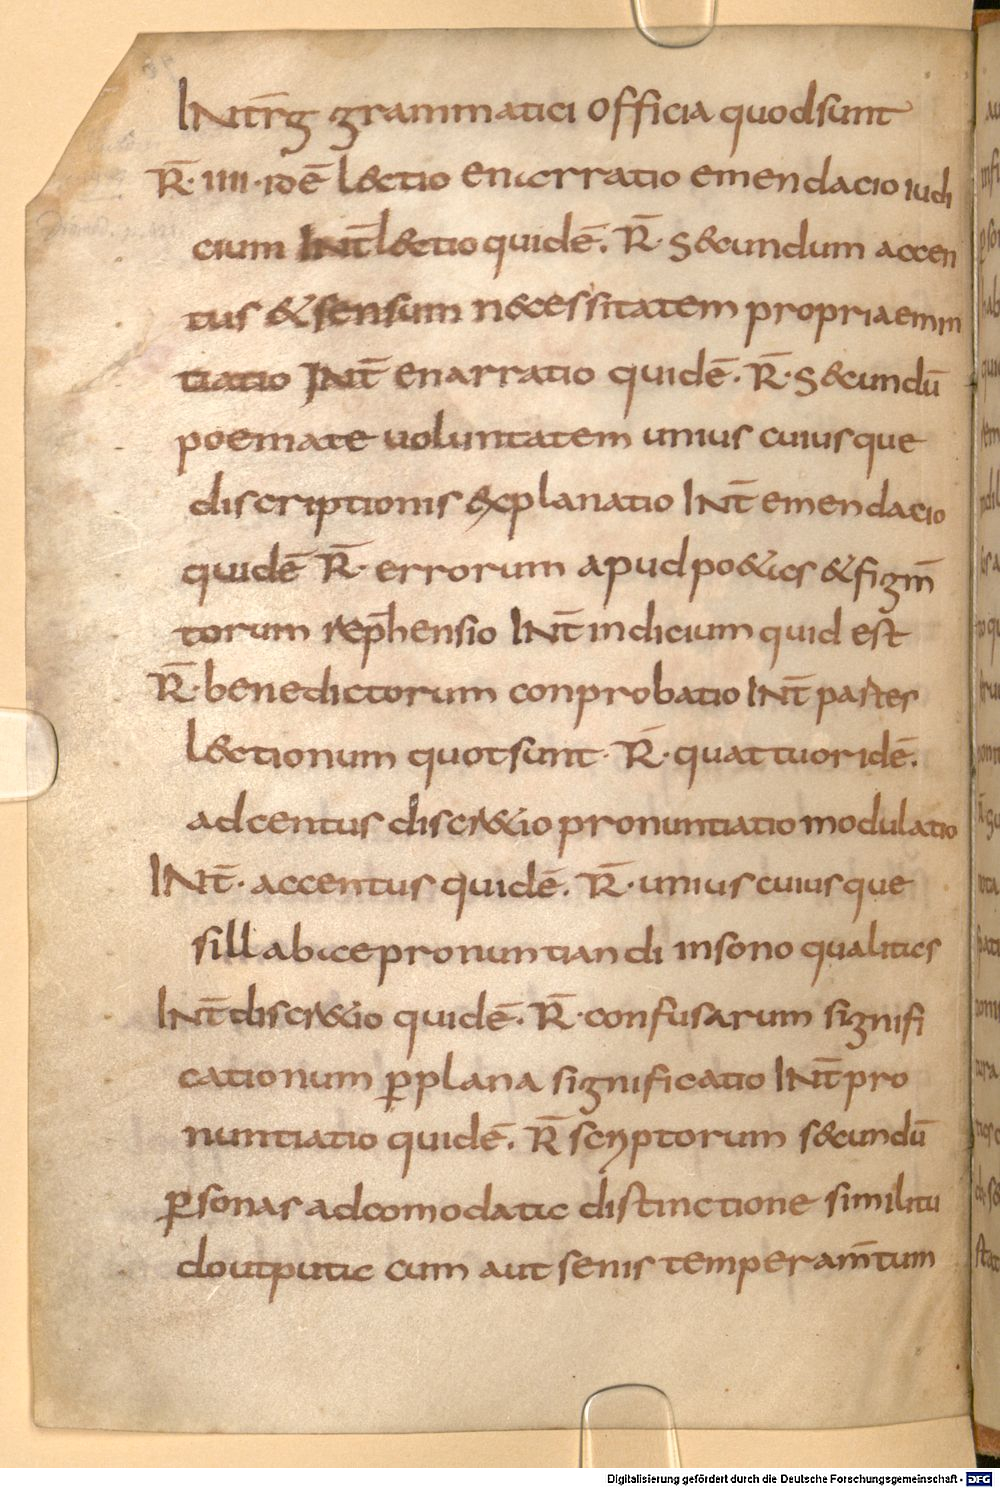 INtr̄g grammatici officia quod sunt
R̄· IIII· idē lectio enarratio emendacio iudi
cium INt̄ lectio quidē. R̄· secundum accen
tus & sensum necessitatem propria enun
tiatio INt̄ enarratio quidē· R̄· secundū
poemate uoluntatem unius cuiusque
discriptionis explanatio INt̄ emendacio
quidē R̄· errorum apud poetas & figm̄
torum rep̄hensio INt̄ indicium quid est
R̄· benedictorum conprobatio INt̄ partes
lectionum quot sunt· R̄· quattuor idē.
adcentus discretio pronuntiatio modulatio
INt̄· accentus quidē. R̄· unius cuiusque
sillabice pronuntiandi in sono qualitas
INt̄ discretio quidē· R̄· confusarum signifi
cationum p̱plana significatio INt̄ pro
nuntiatio quidē. R̄ scryptorum secundū
p̱sonas adcomodata distinctione similitu
do ut puta cum aut senis temperam̄tum
Digitalisierung gefördert durch die Deutsche Forschungsgemeinschaft - DFG